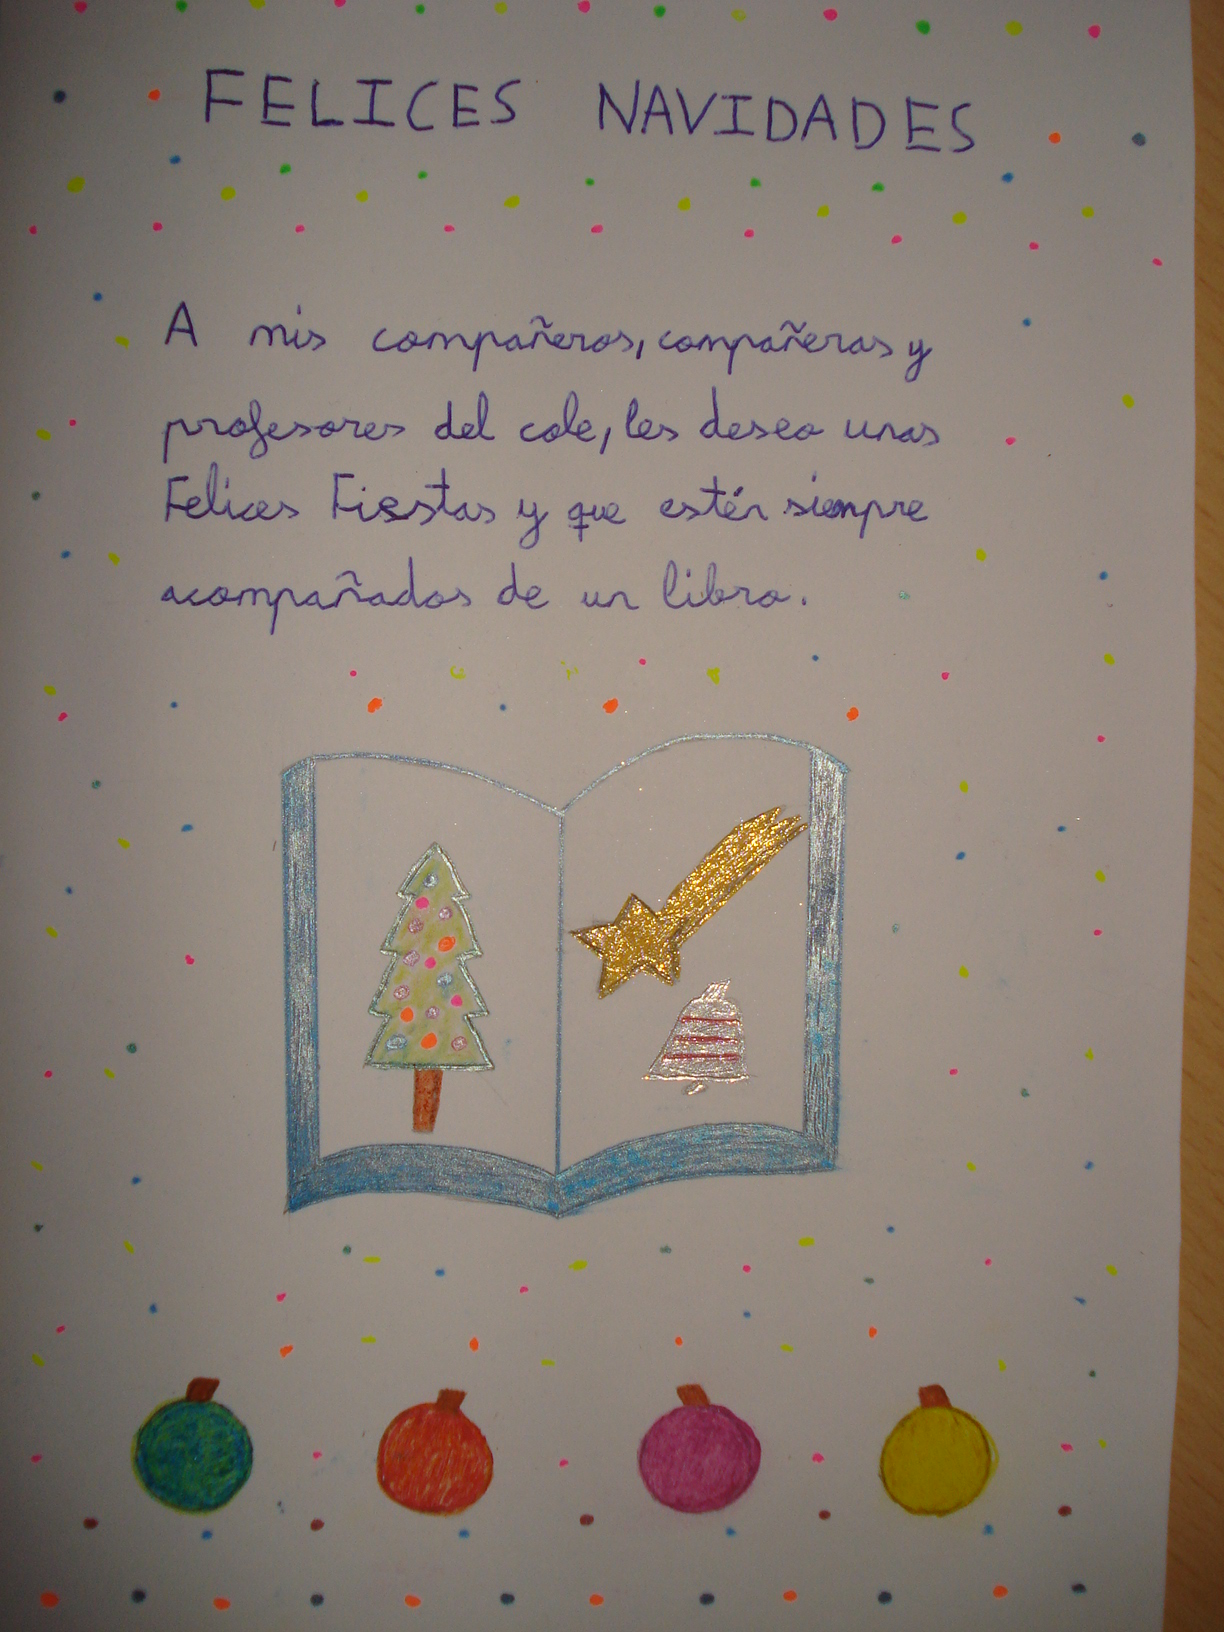 FELICES NAVIDADES
A mis compañeros, compañeras y
profesores del cole, les deseo unas
Felices Fiestas y que estén siempre
acompañados de un libro.